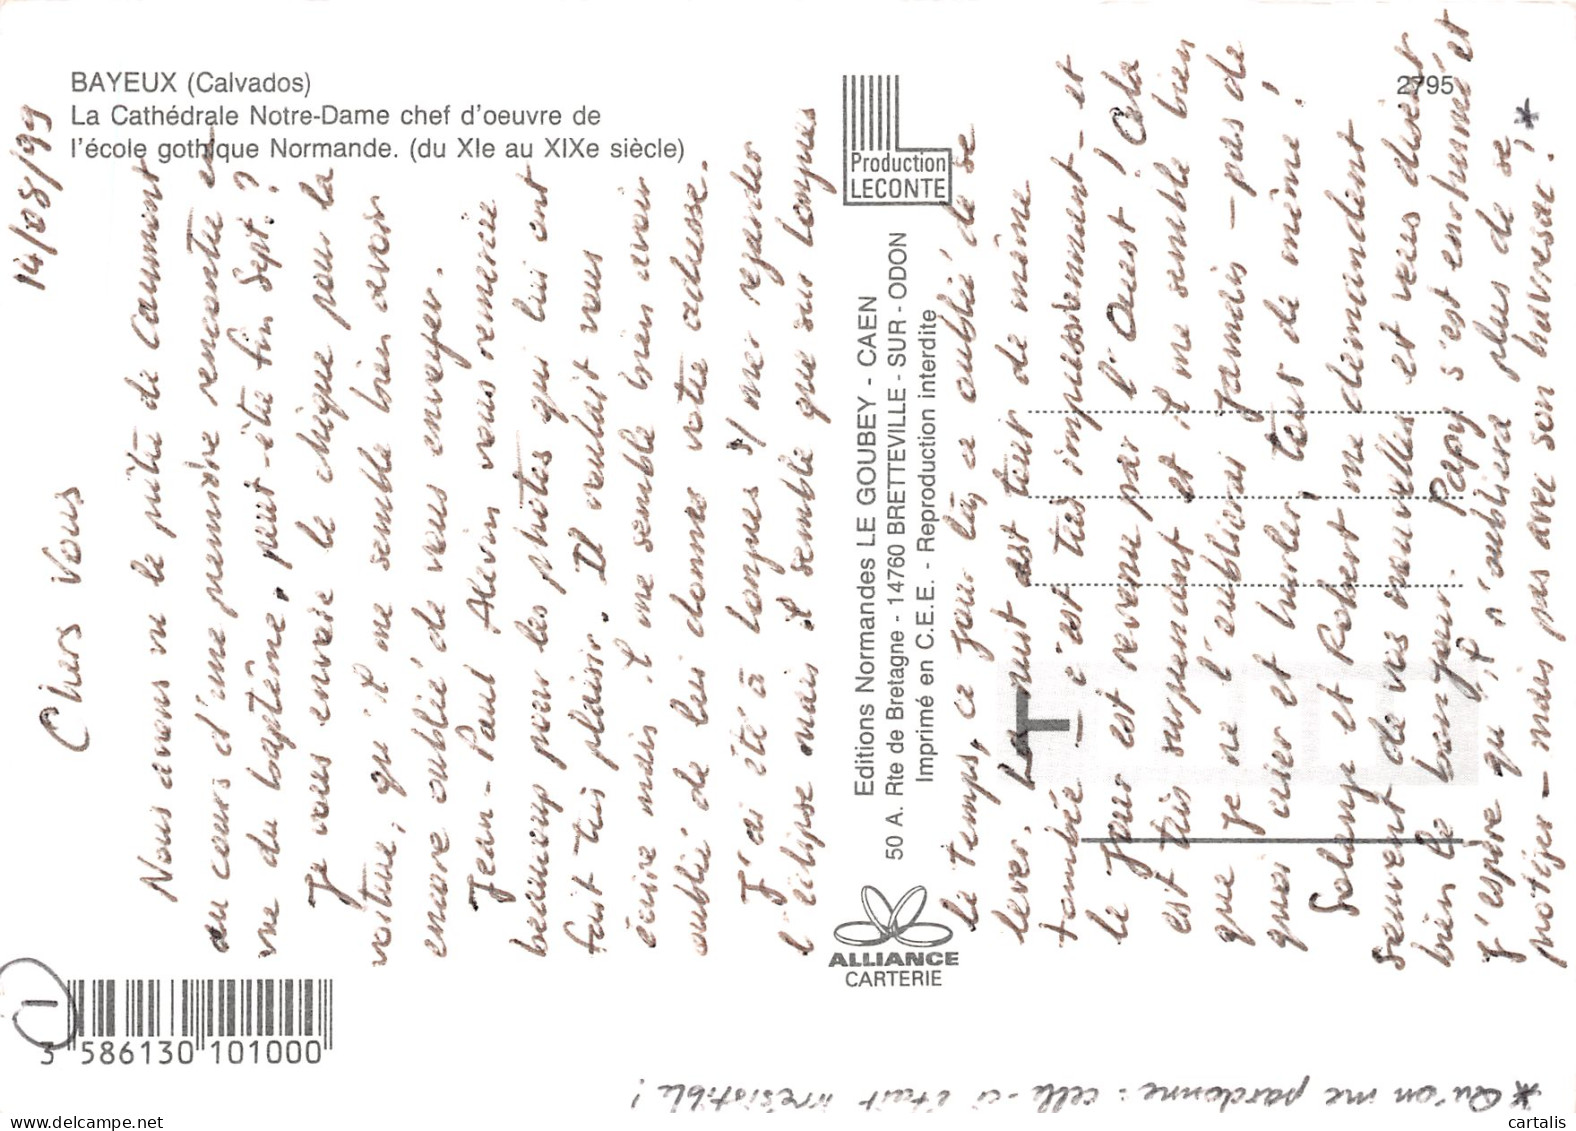 BAYEUX (Calvados)
La Cathédrale Notre-Dame chef d'oeuvre de
l'école gothique Normande. (du XIe au XIXe siècle)
2795
14/08/99
Chers Vous
Nous avons vu le prêtre de Caumont
au cours d'une première rencontre en
vue du baptême, peut-être fin Sept. ?
Je vous envoie le chèque pour la
voiture, qu'il me semble bien avoir
encore oublié de vous envoyer.
Jean-Paul Alevin vous remercie
beaucoup pour les photos qui lui ont
fait très plaisir. Il voulait vous
écrire mais il me semble bien avoir
oublié de lui donner votre adresse.
J'ai été à Longues s/mer regarder
l'éclipse mais il semble que sur Longues
le temps, ce jour là, a oublié de se
lever. LA nuit est tout de même
tombée - c'est très impressionnant - et
le jour est revenu par l'Ouest ! Cela
est très surprenant et il me semble bien
que je ne l'oublierai jamais - pas de
quoi crier et hurler, tout de même !
Solange et Robert me demandent
souvent de vos nouvelles et vous disent
bien le bonjour. Papy s'est enrhumé et
J'espère qu'il n'oubliera plus de se
protéger - mais pas avec son havresac ! *
* Qu'on me pardonne : celle-ci était irrésistible !
Production
LECONTE
Editions Normandes LE GOUBEY - CAEN
50 A. Rte de Bretagne - 14760 BRETTEVILLE - SUR - ODON
Imprimé en C.E.E. - Reproduction interdite
ALLIANCE
CARTERIE
1
3 586130 101000
cartalis